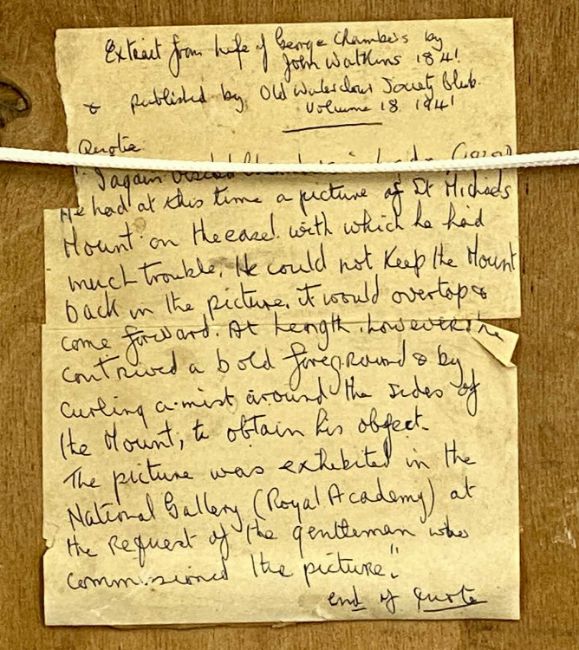 Extract from Life of George Chambers by
John Watkins 1841
& published by Old Watercolour Society Club.
Volume 18 1941
Quote
"I again visited
He had at this time a picture of St Michaels
Mount on the easel with which he had
much trouble. He could not keep the Mount
back in the picture, it would overtop &
come forward. At length, however, he
contrived a bold foreground & by
curling a mist around the sides of
the Mount, to obtain his object.
The picture was exhibited in the
National Gallery (Royal Academy) at
the request of the gentleman who
commissioned the picture."
end of quote